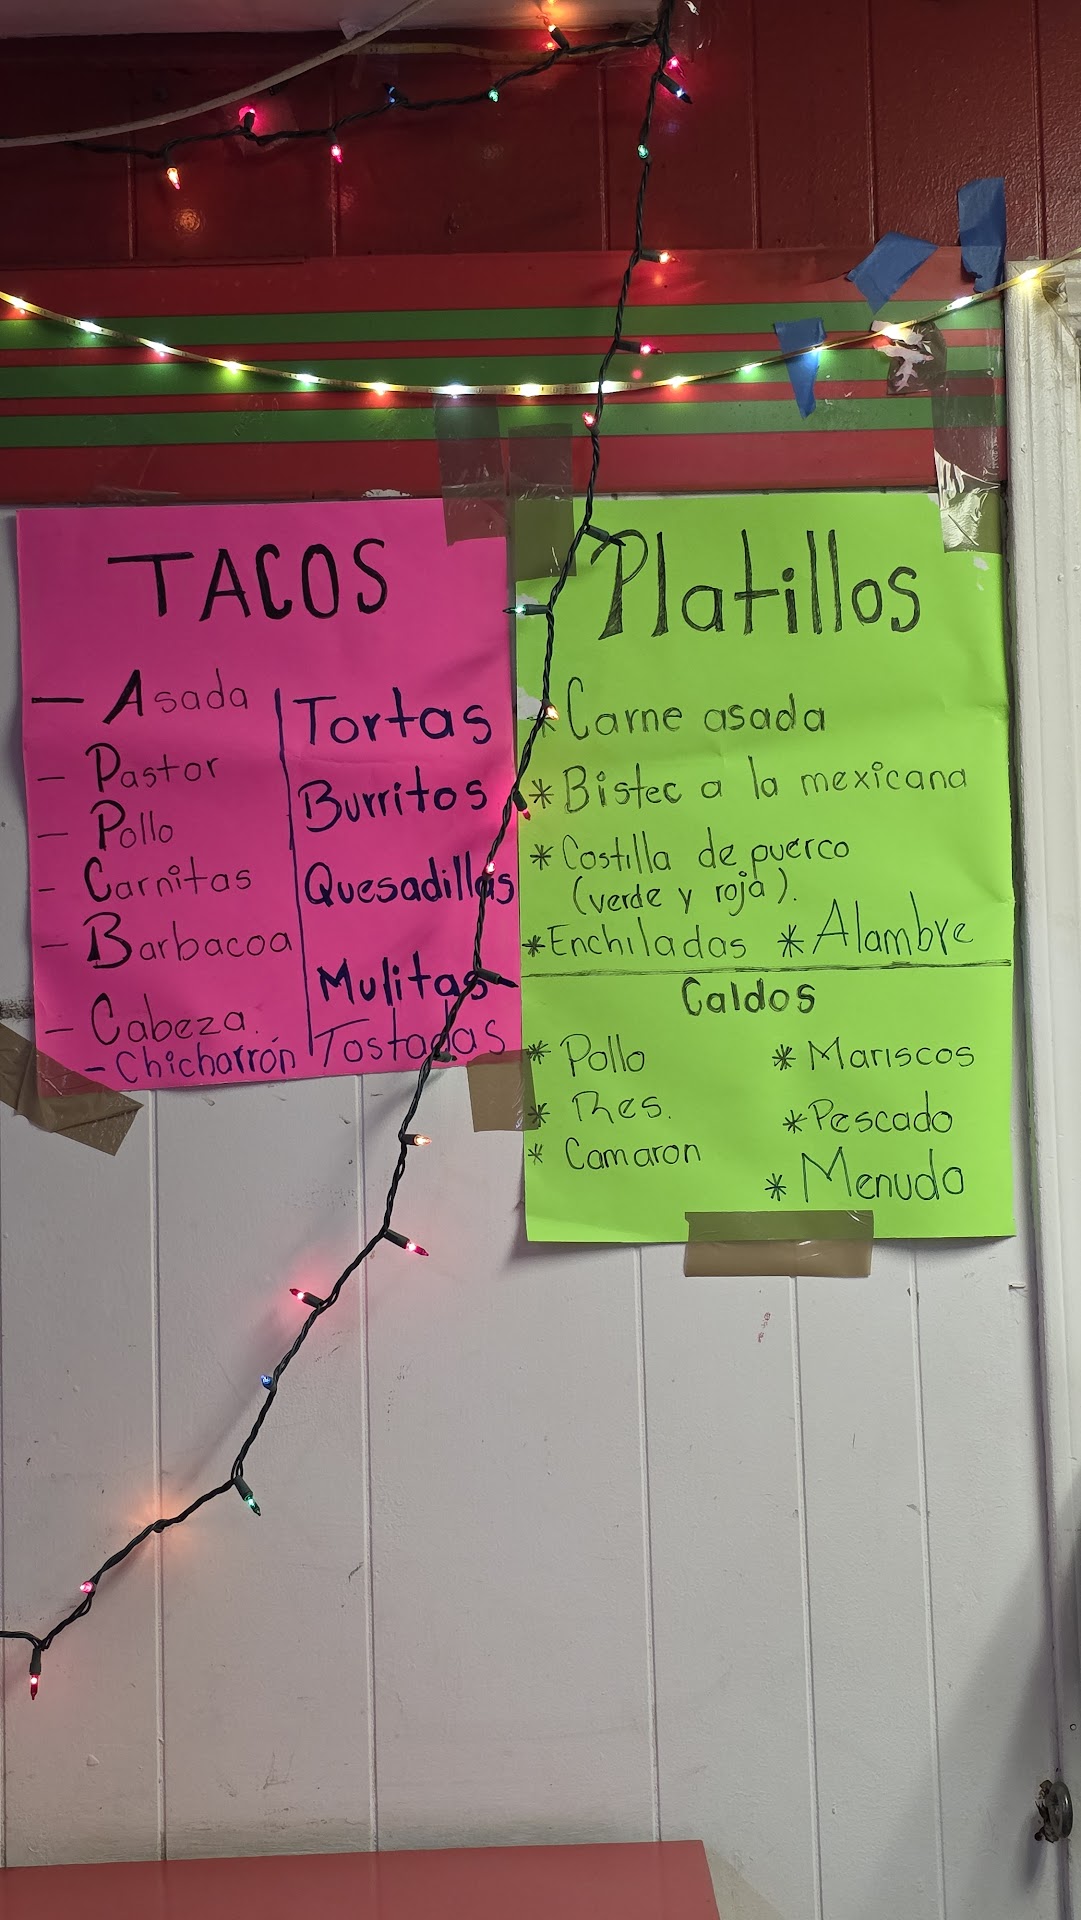 TACOS
— Asada
- Pastor
- Pollo
- Carnitas
- Barbacoa
- Cabeza.
- Chicharrón
Tortas
Burritos
Quesadillas
Mulitas
Tostadas
Platillos
* Carne asada
* Bistec a la mexicana
* Costilla de puerco
(verde y roja).
* Enchiladas * Alambre
Caldos
* Pollo
* Res.
* Camaron
* Mariscos
* Pescado
* Menudo